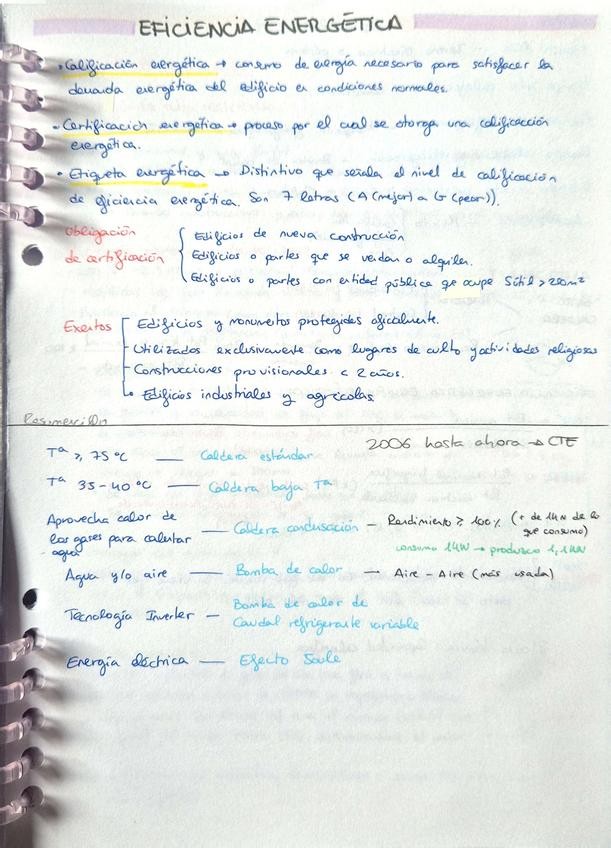 EFICIENCIA ENERGÉTICA
• Calificación energética → consumo de energía necesario para satisfacer la
demanda energética del edificio en condiciones normales.
• Certificación energética → proceso por el cual se otorga una calificación
energética.
• Etiqueta energética → Distintivo que señala al nivel de calificación
de eficiencia energética. Son 7 letras (A (mejor) a G (peor)).
Obligación
de certificación
Edificios de nueva construcción
Edificios o partes que se vendan o alquilen.
Edificios o partes con entidad pública que ocupe Sútil > 250m²
Exentos
Edificios y monumentos protegidos oficialmente.
Utilizados exclusivamente como lugares de culto y actividades religiosas
Construcciones provisionales < 2 años.
Edificios industriales y agrícolas
2006 hasta ahora → CTE
Tª ≥ 75 °C — Caldera estándar
Tª 35-40 °C — Caldera baja Tª
Aprovecha calor de
los gases para calentar
agua
— Caldera condensación — Rendimiento ≥ 100% (+ de 1kW de lo
que consumo)
consumo 1kW → produzco 1,1kW
Agua y/o aire — Bomba de calor → Aire - Aire (más usada)
Tecnología Inverter — Bomba de calor de
Caudal refrigerante variable
Energía eléctrica — Efecto Joule